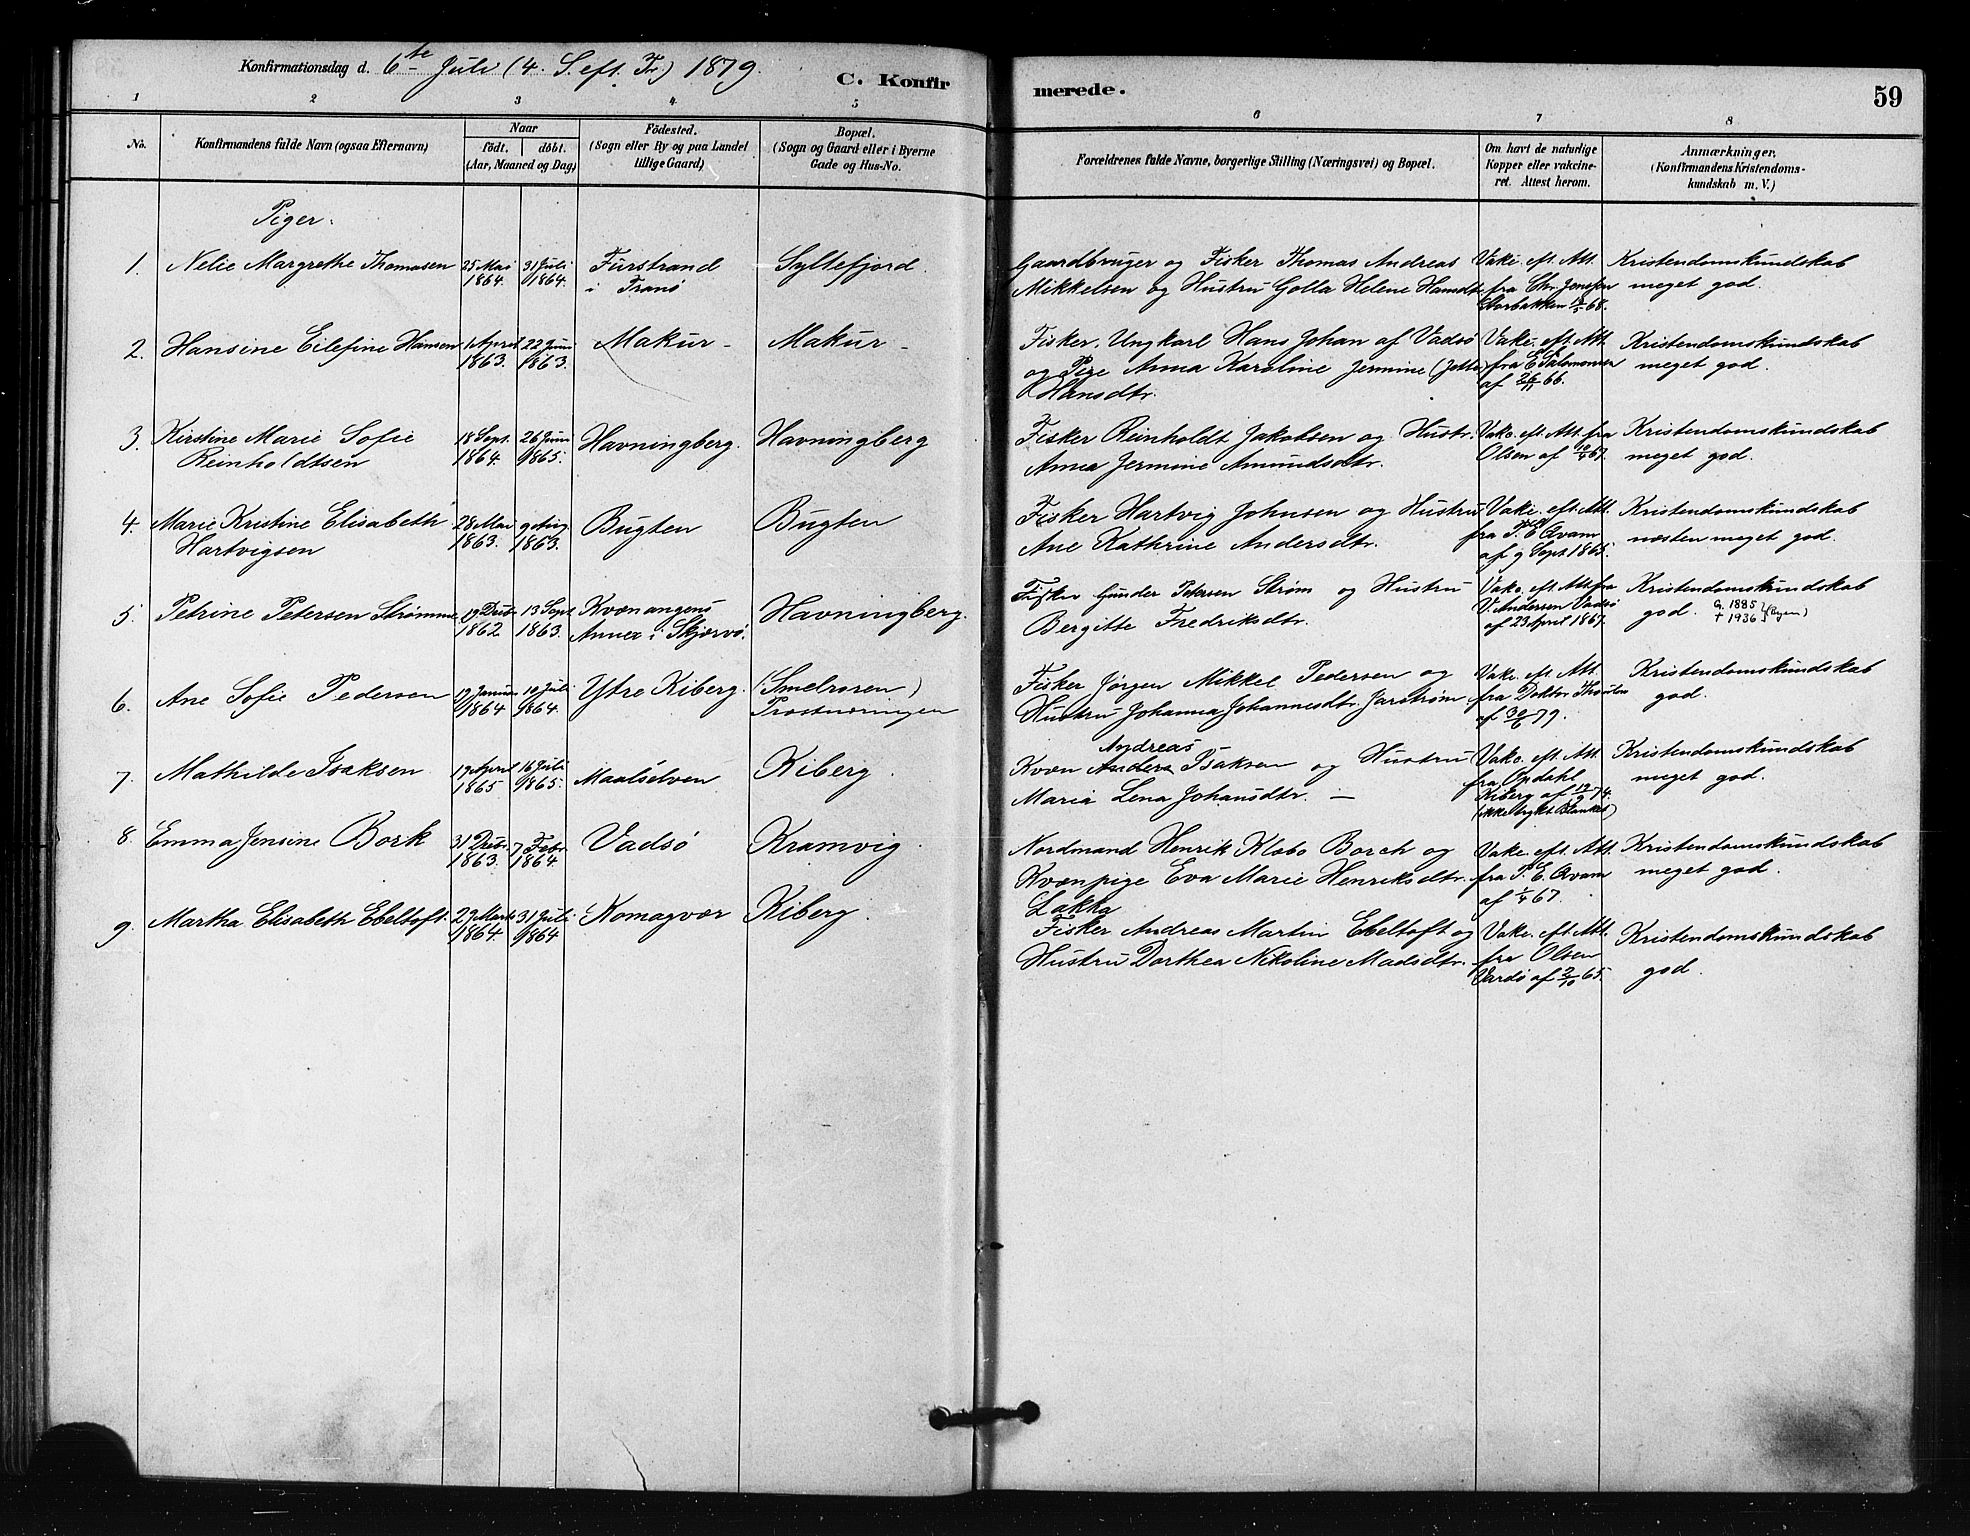 Konfirmationsdag d. 6te Juli (4. S. eft. Tr.) 1879.
C. Konfirmerede.
59
1 2 3 4 5 6 7 8
No.
Konfirmandens fulde Navn (ogsaa Efternavn)
Naar
födt. döbt.
(Aar, Maaned og Dag)
Födested.
(Sogn eller By og paa Landet
tillige Gaard)
Bopæl.
(Sogn og Gaard eller i Byerne
Gade og Hus-No.
Forældrenes fulde Navne, borgerlige Stilling (Næringsvei) og Bopæl.
Om havt de naturlige
Kopper eller vakcine-
ret. Attest herom.
Anmærkninger,
(Konfirmandens Kristendoms-
kundskab m. V.)
Piger.
1. Nelie Margrethe Thomasen
25 Mai
1864.
31 Juli
1864.
Furstrand
i Tranö
Syltefjord
Gaardbruger og Fisker Thomas Andreas
Mikkelsen og Hustru Golla Helene Hansdtr
Vakc. eft. Att.
fra Chr. Jenssen
Storbakken 68.
Kristendomskundskab
meget god.
2. Hansine Eilefine Hansen
1 April
1863.
22 Juni
1863.
Makur -
Makur -
Fisker, Ungkarl Hans Johan af Vadsö
og Pige Anna Karoline Jermine (Jette)
Hansdtr.
Vakc. eft. Att.
fra E Salomonsen
af 26/11 66.
Kristendomskundskab
meget god.
3. Kirstine Marie Sofie
Reinholdtsen
18 Sept.
1864.
26 Juni
1865.
Havningberg.
Havningberg
Fisker Reinholdt Jakobsen og Hustr.
Anna Jermine Amundsdtr.
Vakc. eft. Att. fra
Olsen af 67.
Kristendomskundskab
meget god.
4. Marie Kristine Elisabeth
Hartvigsen
28 Mai
1863.
9 Aug
1863.
Bugten
Bugten
Fisker Hartvig Johnsen og Hustru
Ane Kathrine Andersdtr.
Vakc. eft. Att.
fra P. E Qvam
af 9 Sept. 1865.
Kristendomskundskab
næsten meget god.
5. Petrine Petersen Strömme
19 Decbr
1862
13 Sept
1863.
Kvænangens
Annex i Skjervö.
Havningberg.
Fisker Gunder Petersen Ström og Hustru
Bergitte Fredriksdtr.
Vakc. eft. Att. fra
V. Andersen Vadsö
af 23 April 1867.
Kristendomskundskab
god. G. 1885
† 1936
6. Ane Sofie Pedersen
19 Januar
1864
10 Juli
1864.
Ytre Kiberg.
(Smelroren)
Prestnæringen
Fisker Jörgen Mikkel Pedersen og
Hustru Johanna Johannesdtr. Jarström
Vakc. eft. Att.
fra Doktor
af 30/6 79.
Kristendomskundskab
god.
7. Mathilde Isaksen
19 April
1865
16 Juli
1865.
Maalselven
Kiberg.
Andreas
Kvæn Anders Isaksen og Hustru
Maria Lena Johansdtr. -
Vakc. eft. Att.
fra Opdahl
Kiberg af 74.
(ikke trykt Blanket)
Kristendomskundskab
meget god.
8. Emma Jensine Bork
31 Decbr.
1863.
7 Febr.
1864.
Vadsö
Kramvig.
Nordmand Henrik Klabo Borch og
Kvænpige Eva Marie Henriksdtr.
Lakka
Vakc. eft. Att.
fra P. E. Qvam
af 1/4 67.
Kristendomskundskab
meget god.
9. Martha Elisabeth Ebeltoft.
27 Marts
1864.
31 Juli
1864
Komagvær
Kiberg.
Fisker Andreas Martin Ebeltoft og
Hustru Dorthea Nikoline Madsdtr.
Vakc. eft. Att.
fra Olsen
Vardö af 2/10 65.
Kristendomskundskab
god.